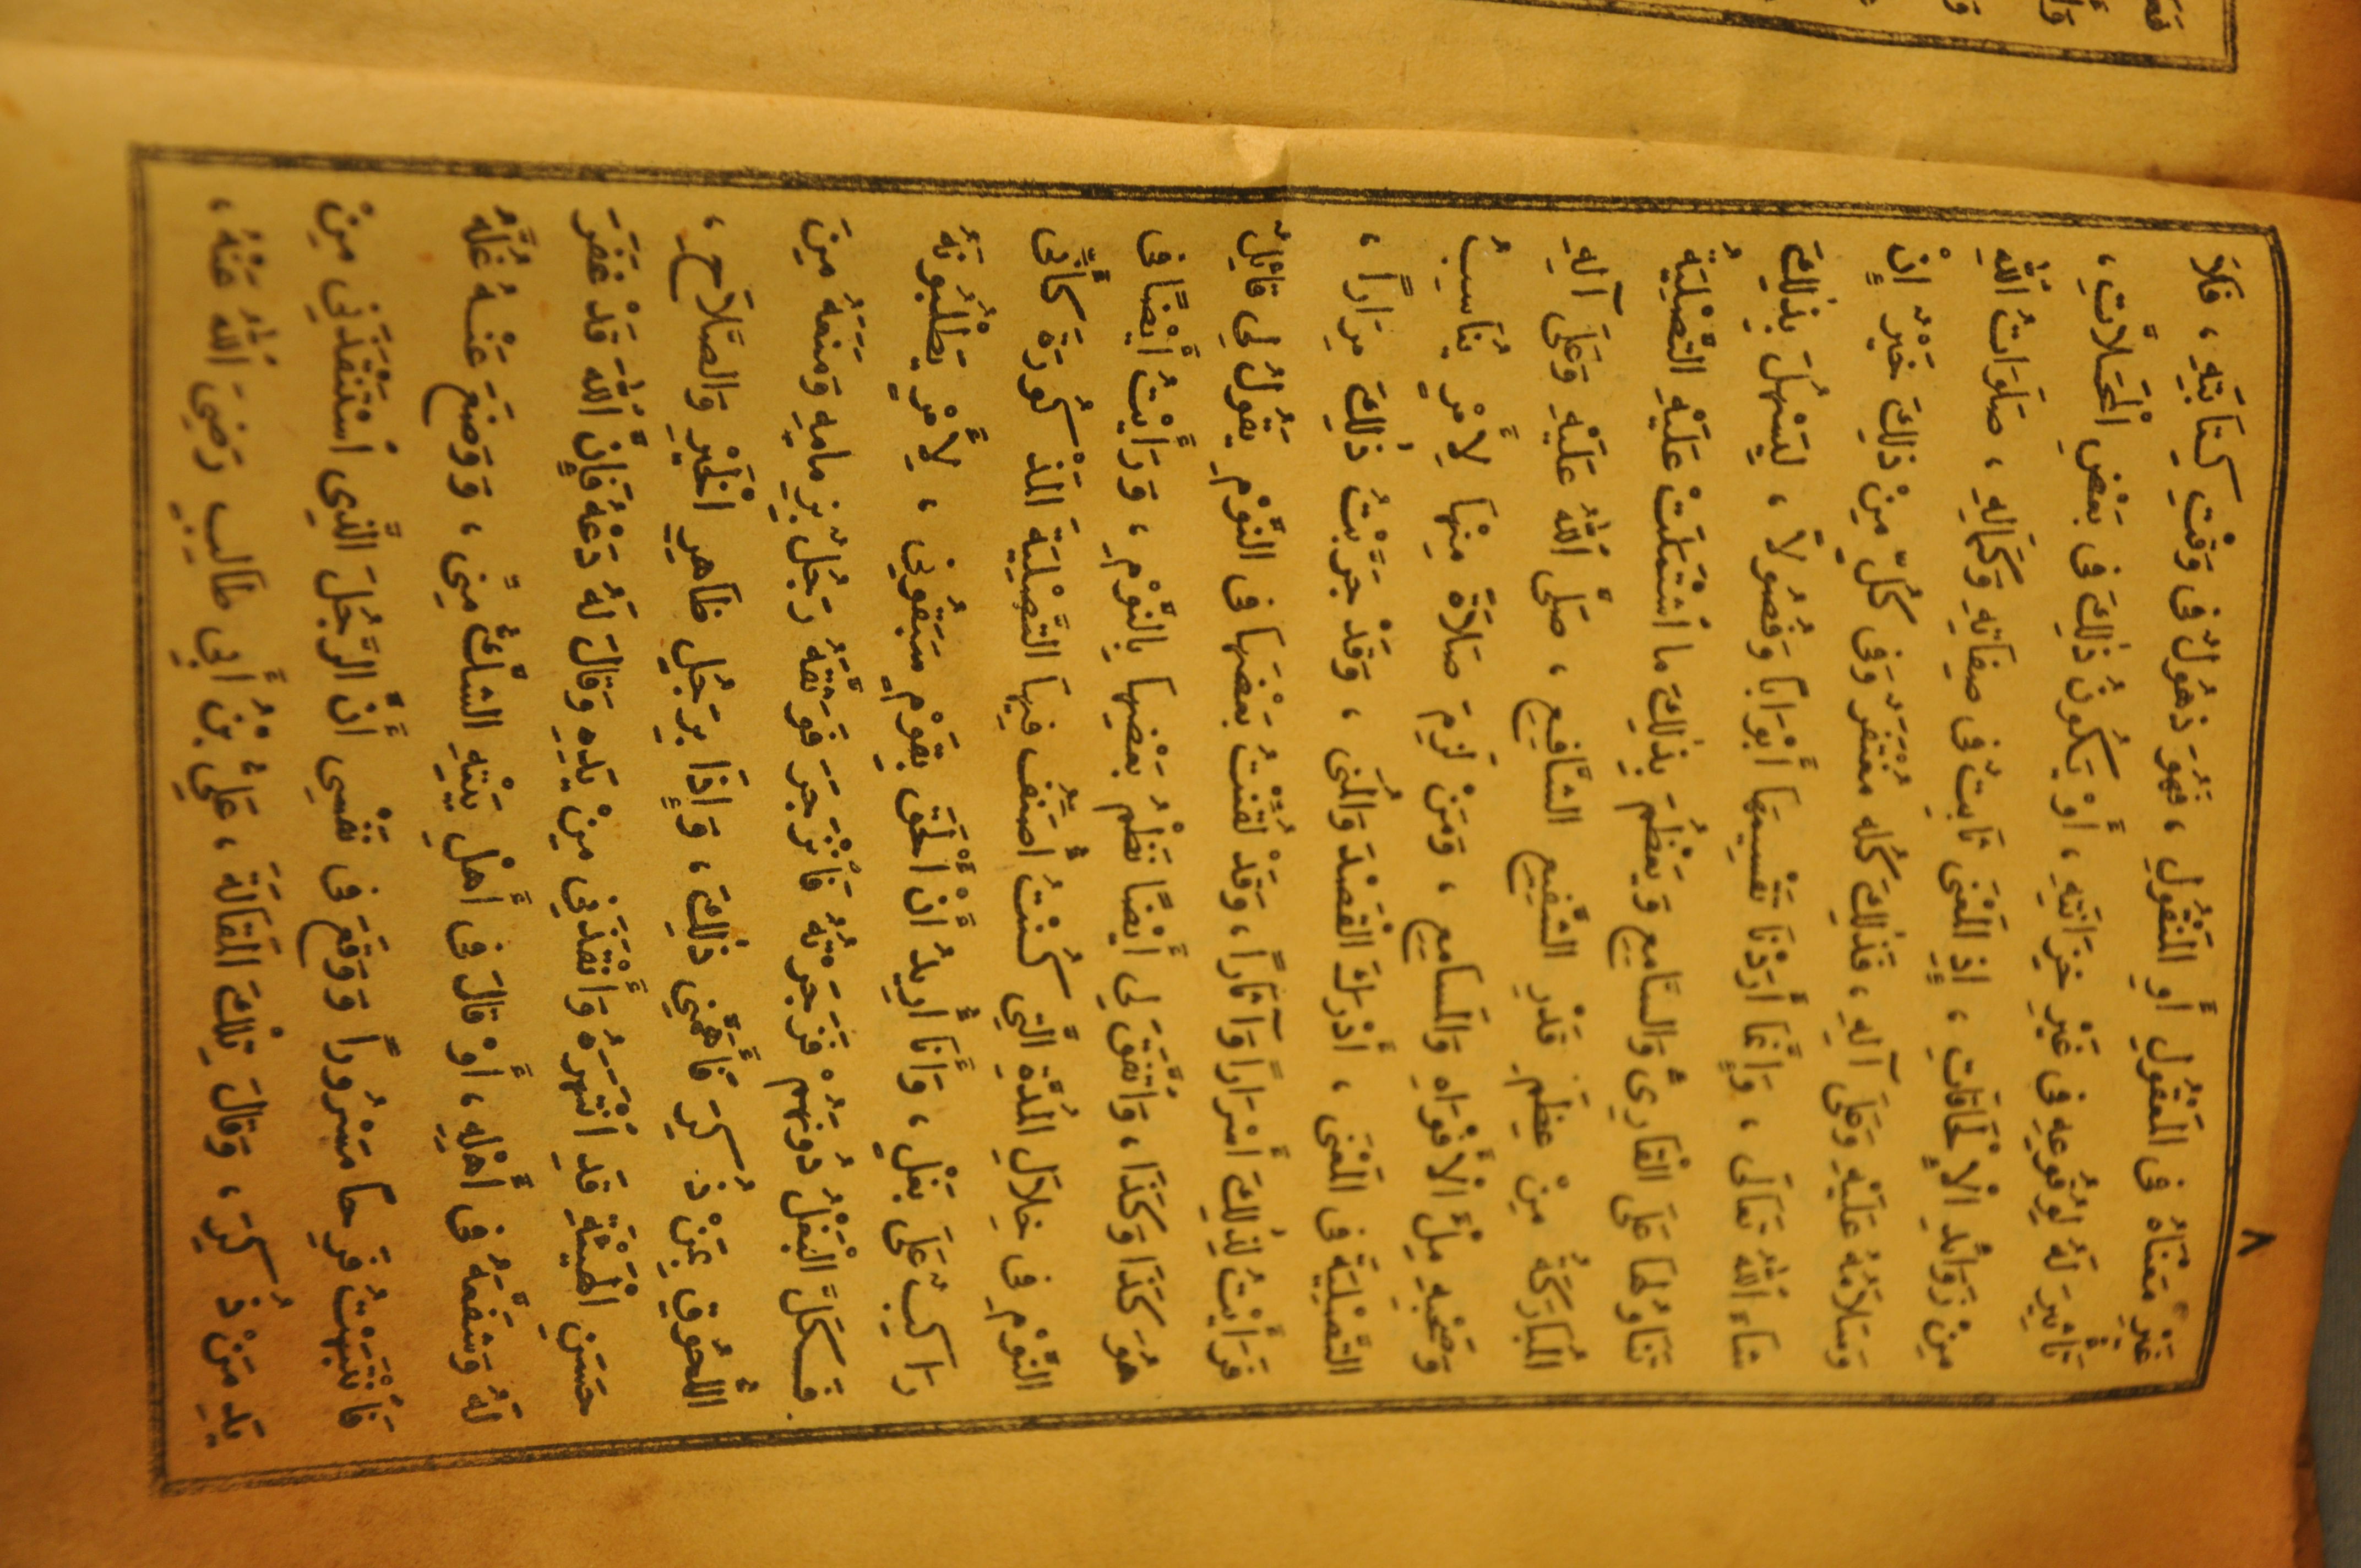 ٨
غَيْرِ مَعْنَاهُ فِى الْمَعْقُولِ أَوِ الْمَنْقُولِ ، فَهُوَ ذُهُولٌ فِى وَقْتِ كِتَابَتِهِ ، فَلَا
تَأْثِيرَ لَهُ لِوُقُوعِهِ فِى غَيْرِ خِزَانَتِهِ ، أَوْ يَكُونُ ذٰلِكَ فِى بَعْضِ الْمَحَلَّاتِ ،
مِنْ زَوَائِدِ الْإِلْحَاقَاتِ ، إِذِ الْمَعْنَى ثَابِتٌ فِى صِفَاتِهِ وَكَمَالِهِ ، صَلَوَاتُ اللهِ
وَسَلَامُهُ عَلَيْهِ وَعَلَى آلِهِ ، فَذٰلِكَ كُلُّهُ مُغْتَفَرٌ وَفِى كُلٍّ مِنْ ذٰلِكَ خَيْرٌ إِنْ
شَاءَ اللهُ تَعَالَى ، وَإِنَّمَا أَرَدْنَا تَقْسِيمَهَا أَبْوَابًا وَفُصُولاً ، لِيَسْهُلَ بِذٰلِكَ
تَنَاوُلُهَا عَلَى الْقَارِئِ وَالسَّامِعِ وَيَعْظُمَ بِذٰلِكَ مَا اشْتَمَلَتْ عَلَيْهِ التَّصْلِيَةُ
الْمُبَارَكَةُ مِنْ عِظَمِ قَدْرِ الشَّفِيعِ الشَّافِعِ ، صَلَّى اللهُ عَلَيْهِ وَعَلَى آلِهِ
وَصَحْبِهِ مِلْءَ الْأَفْوَاهِ وَالْمَسَامِعِ ، وَمَنْ لَزِمَ صَلَاةً مِنْهَا لِأَمْرٍ يُنَاسِبُ
التَّصْلِيَةَ فِى الْمَعْنَى ، أَدْرَكَ الْقَصْدَ وَالْمُنَى ، وَقَدْ جَرَّبْتُ ذٰلِكَ مِرَارًا ،
فَرَأَيْتُ لِذٰلِكَ أَسْرَارًا وَآثَارًا ، وَقَدْ لُقِّنْتُ بَعْضَهَا فِى النَّوْمِ يَقُولُ لِى قَائِلٌ
هُوَ كَذَا وَكَذَا ، وَاتَّفَقَ لِى أَيْضًا نَظْمُ بَعْضِهَا بِالنَّوْمِ ، وَرَأَيْتُ أَيْضًا فِى
النَّوْمِ فِى خِلَالِ الْمُدَّةِ الَّتِى كُنْتُ أُصَنِّفُ فِيهَا التَّصْلِيَةَ الْمَذْكُورَةَ كَأَنِّى
رَاكِبٌ عَلَى بَغْلٍ ، وَأَنَا أُرِيدُ أَنْ أَلْحَقَ بِقَوْمٍ سَبَقُونِى ، لِأَمْرٍ يَطْلُبُونَهُ
فَكَلَّ الْبَغْلُ دُونَهُمْ فَزَجَرْتُهُ فَانْزَجَرَ فَوَثَقَهُ رَجُلٌ بِزِمَامِهِ وَمَنَعَهُ مِنَ
اللُّحُوقِ بِمَنْ ذُكِرَ فَأَهَمَّنِى ذٰلِكَ ، وَإِذَا بِرَجُلٍ ظَاهِرِ الْخَيْرِ وَالصَّلَاحِ ،
حَسَنِ الْهَيْئَةِ قَدِ انْتَهَرَهُ وَأَنْقَذَنِى مِنْ يَدِهِ وَقَالَ لَهُ دَعْهُ فَإِنَّ اللهَ قَدْ غَفَرَ
لَهُ وَشَفَّعَهُ فِى أَهْلِهِ ، أَوْ قَالَ فِى أَهْلِ بَيْتِهِ الشَّكُّ مِنِّى ، وَوَضَعَ عَنْهُ غُلَّهُ
فَانْتَبَهْتُ فَرِحًا مَسْرُورًا وَوَقَعَ فِى نَفْسِى أَنَّ الرَّجُلَ الَّذِى اسْتَنْقَذَنِى مِنْ
يَدِ مَنْ ذُكِرَ ، وَقَالَ تِلْكَ الْمَقَالَةَ ، عَلِىُّ بْنُ أَبِى طَالِبٍ رَضِىَ اللهُ عَنْهُ ،